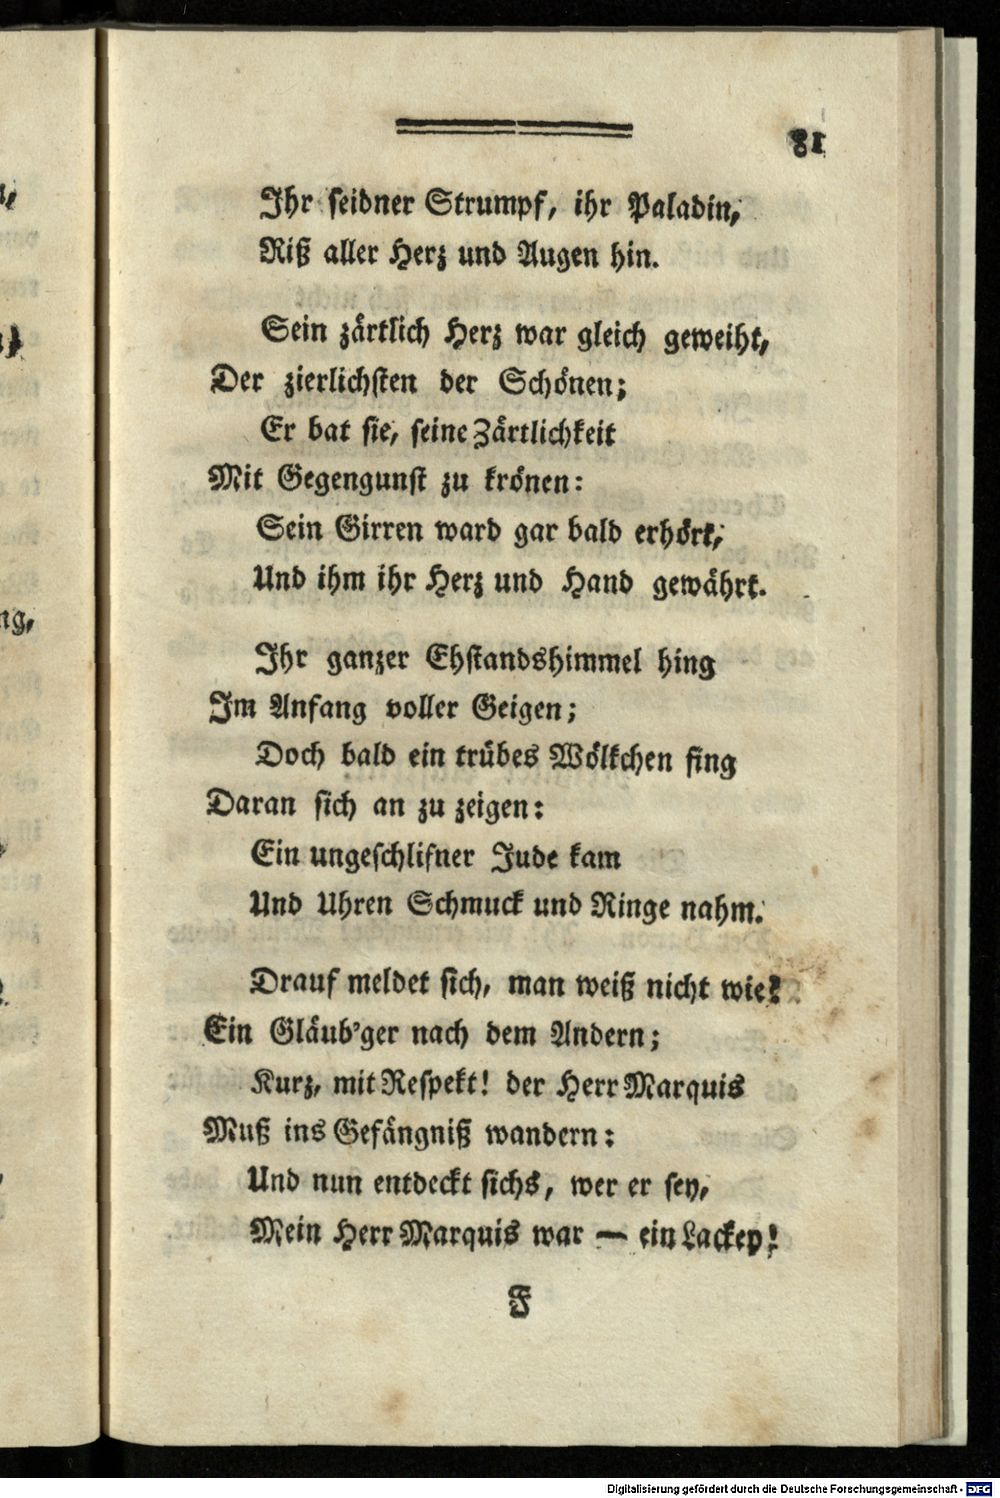 81
Ihr seidner Strumpf, ihr Paladin,
Riß aller Herz und Augen hin.
Sein zärtlich Herz war gleich geweiht,
Der zierlichsten der Schönen;
Er bat sie, seine Zärtlichkeit
Mit Gegengunst zu krönen:
Sein Girren ward gar bald erhört,
Und ihm ihr Herz und Hand gewährt.
Ihr ganzer Ehstandshimmel hing
Im Anfang voller Geigen;
Doch bald ein trübes Wölkchen fing
Daran sich an zu zeigen:
Ein ungeschlifner Jude kam
Und Uhren Schmuck und Ringe nahm.
Drauf meldet sich, man weiß nicht wie?
Ein Gläub'ger nach dem Andern;
Kurz, mit Respekt! der Herr Marquis
Muß ins Gefängniß wandern:
Und nun entdeckt sichs, wer er sey,
Mein Herr Marquis war — ein Lackey!
F
Digitalisierung gefördert durch die Deutsche Forschungsgemeinschaft - DFG